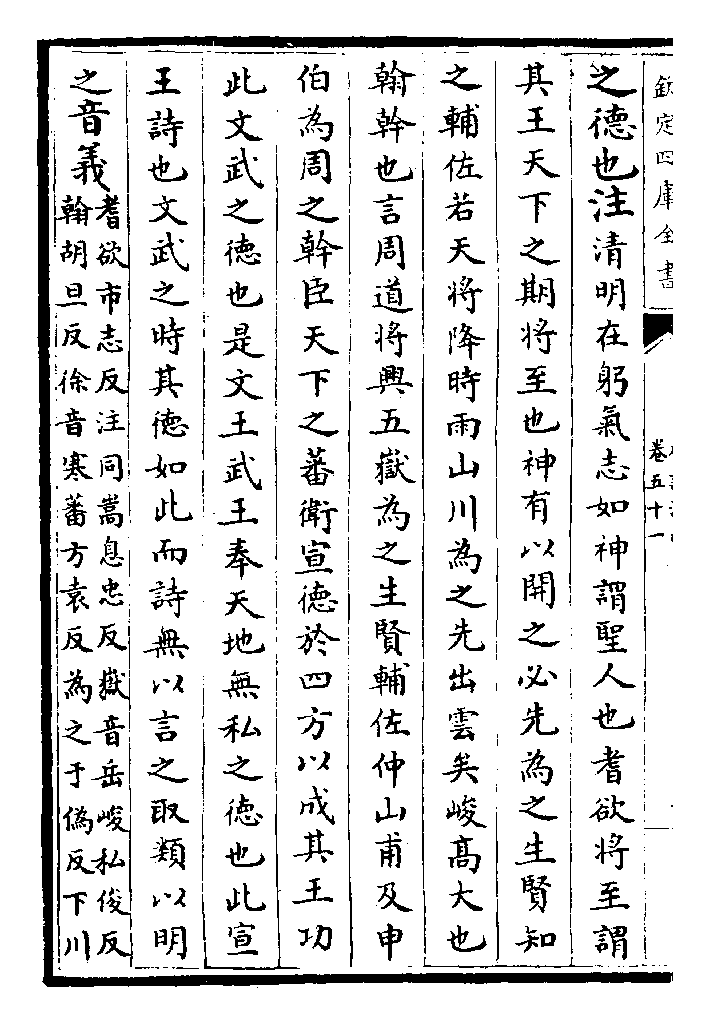 欽定四庫全書
卷五十一
之德也注清明在躬氣志如神謂聖人也耆欲將至謂
其王天下之期將至也神有以開之必先為之生賢知
之輔佐若天將降時雨山川為之先出雲矣峻高大也
翰幹也言周道將興五嶽為之生賢輔佐仲山甫及申
伯為周之幹臣天下之蕃衛宣德於四方以成其王功
此文武之德也是文王武王奉天地無私之德也此宣
王詩也文武之時其德如此而詩無以言之取類以明
之音義耆欲市志反注同嵩息忠反嶽音岳峻私俊反
翰胡旦反徐音寒蕃方袁反為之于偽反下川